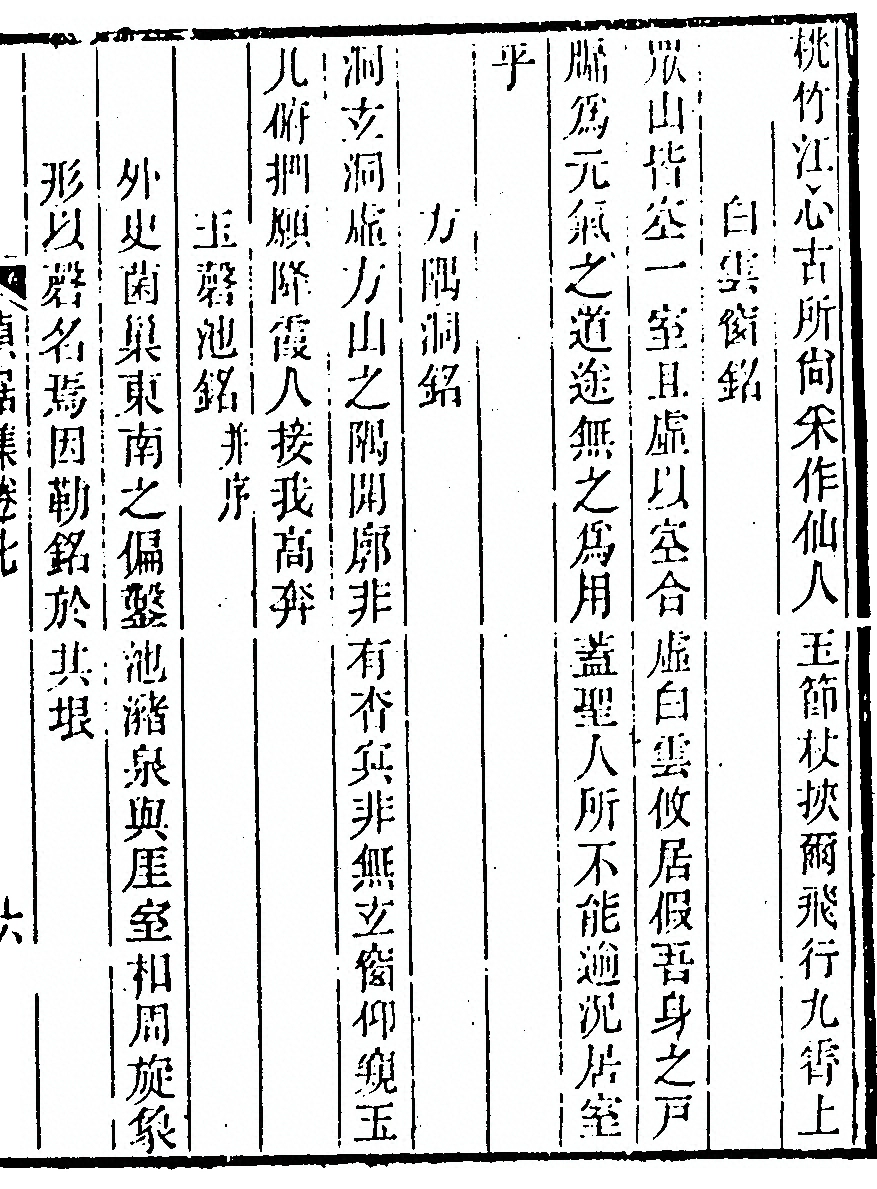 桃竹江心古所尙采作仙人玉節杖挾爾飛行九霄上
白雲窗銘
眾山皆空一室且虛以空合虛白雲攸居假吾身之戸
牖爲元氣之道途無之爲用蓋聖人所不能逾況居室
乎
方隅洞銘
洞玄洞虛方山之隅開廓非有杳冥非無玄窗仰窺玉
几俯捫願降霞人接我高奔
玉磬池銘 并序
外史菌巢東南之偏鑿池瀦泉與厓室相周旋象
形以磬名焉因勒銘於其垠
貞居集卷七
六